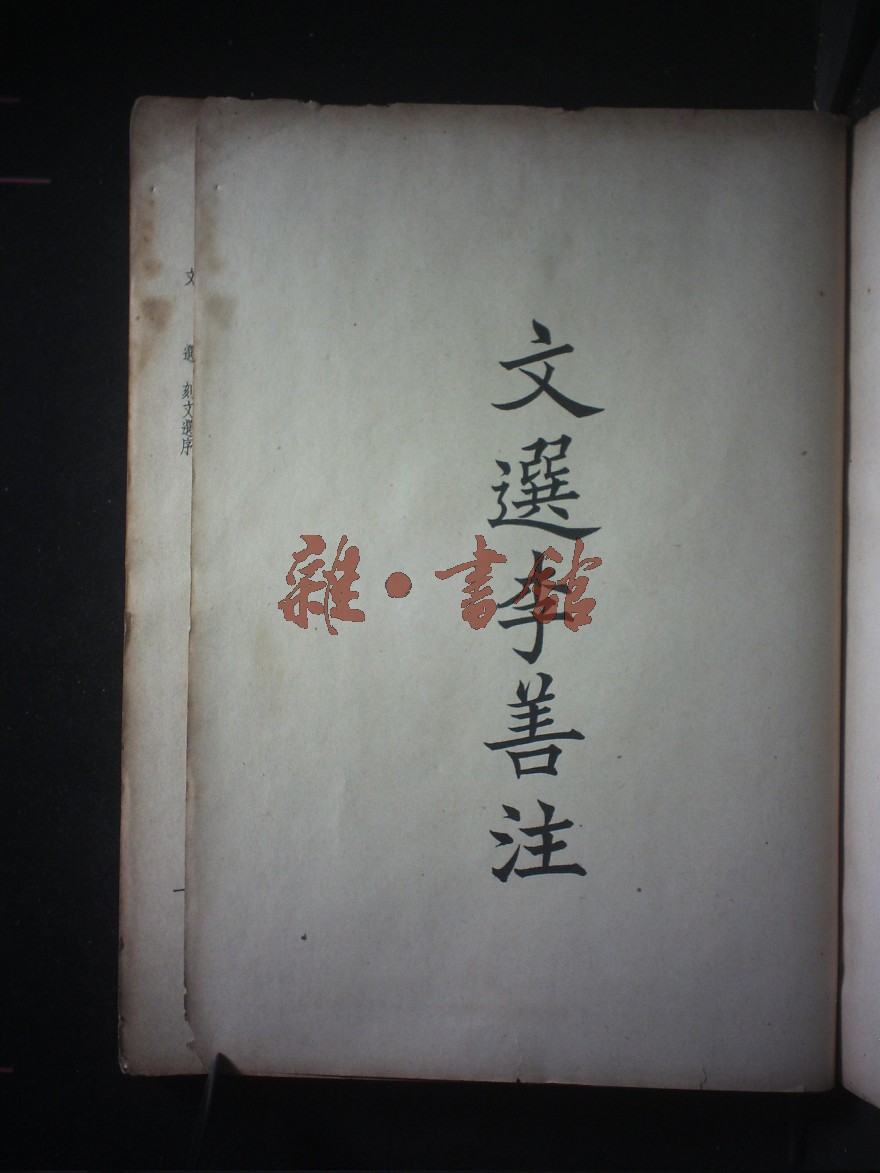 文選李善注
雜·書館
文 選 刻文選序
一